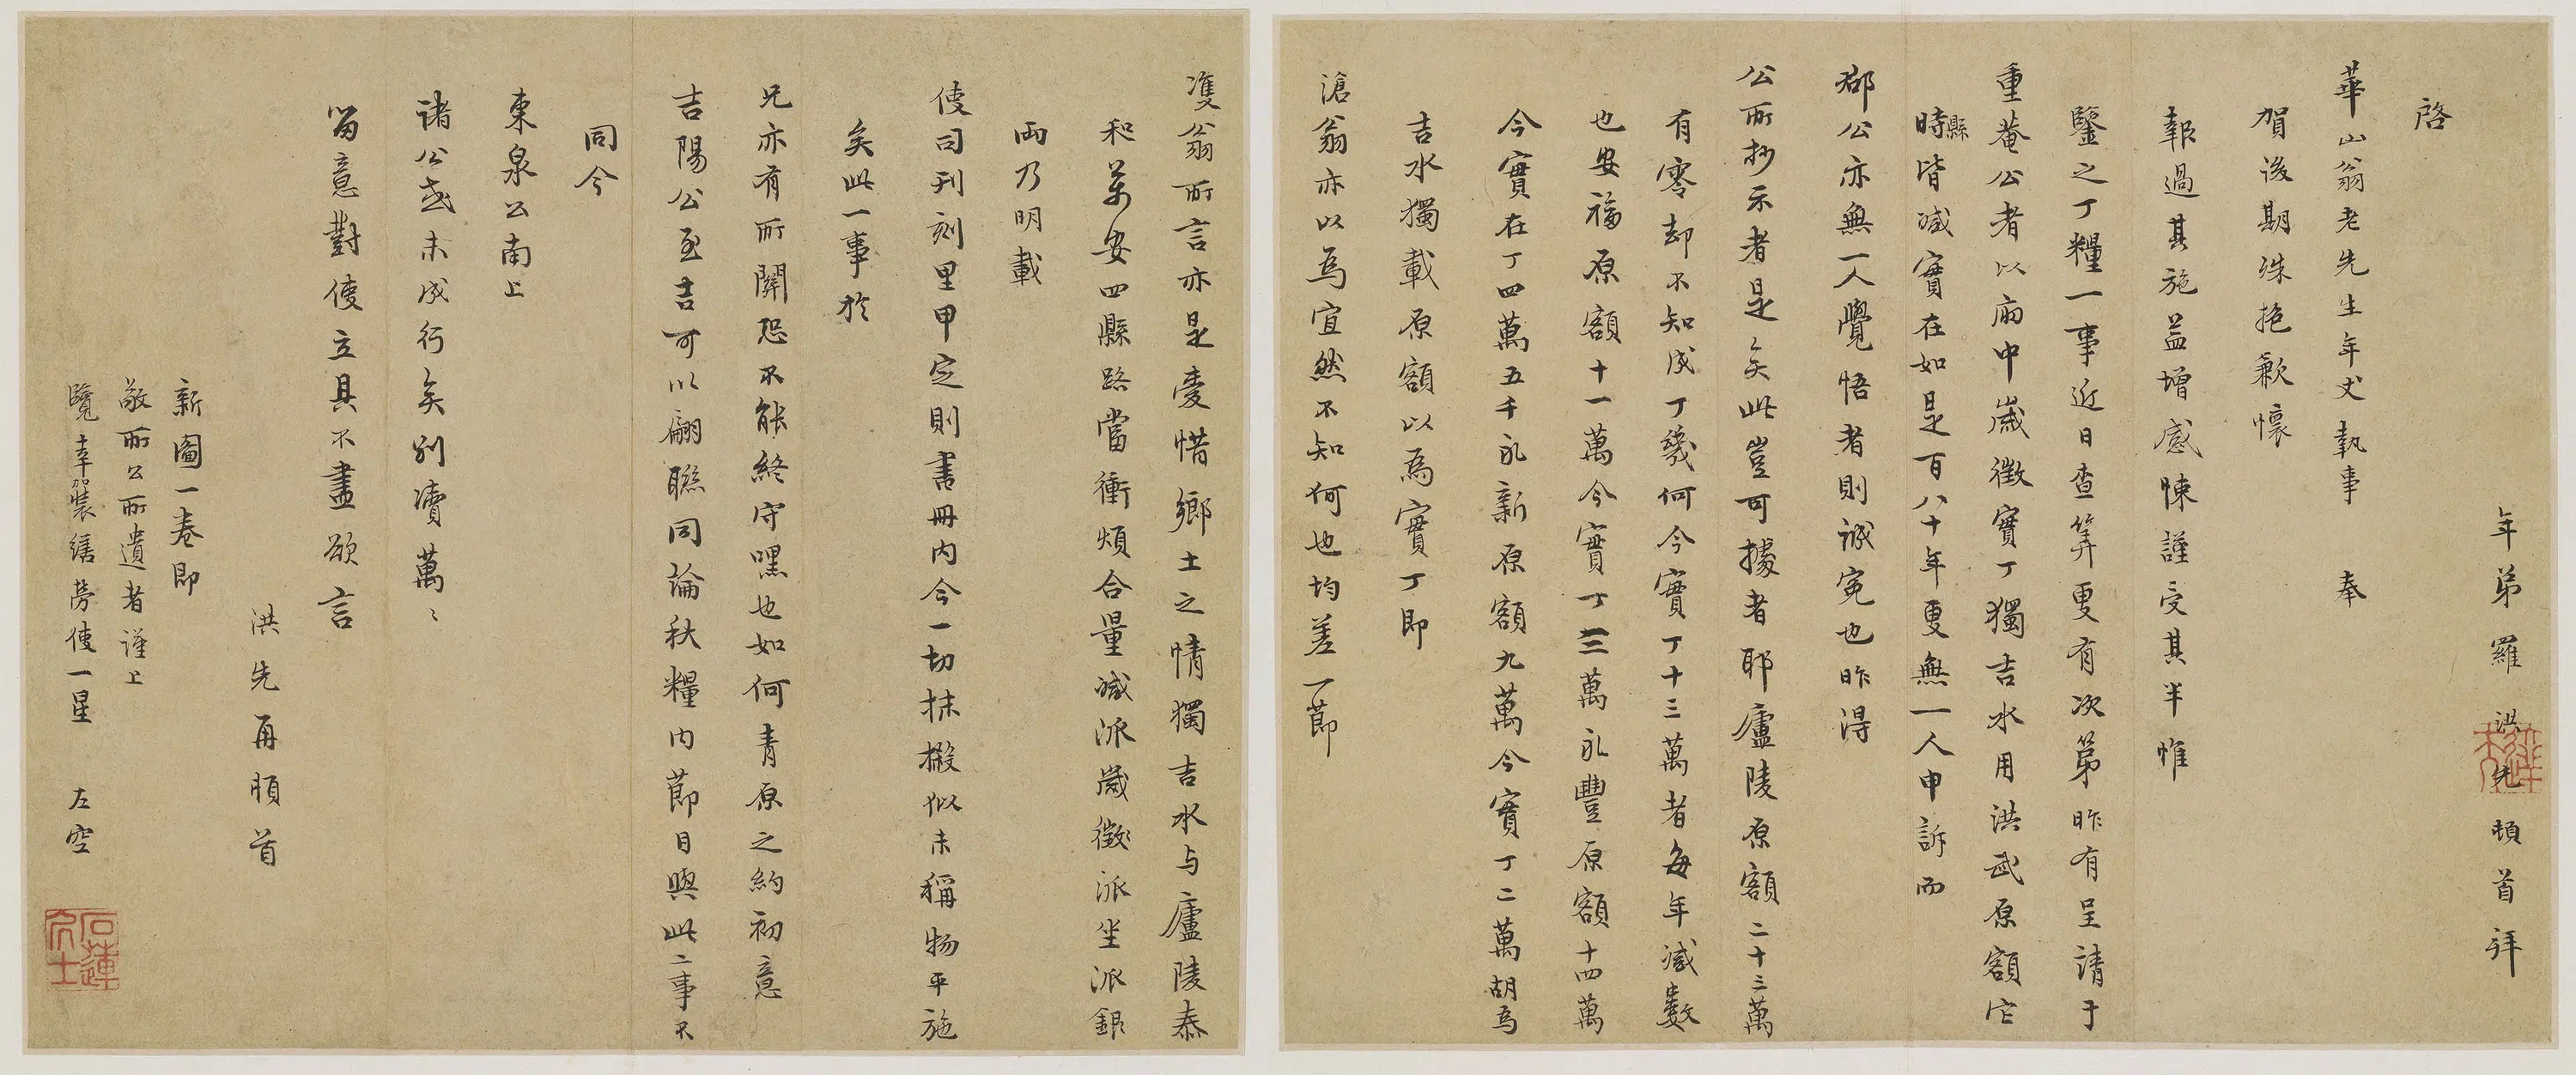 年弟羅洪先頓首拜
啓
華山翁老先生年丈執事　奉
賀後期殊抱歉懷
報過其施益增感悚謹受其半惟
鑒之丁糧一事近日查筭更有次第昨有呈請于
重菴公者以兩中歲徵實丁獨吉水用洪武原額它
縣
時皆減實在如是百八十年更無一人申訴而
郡公亦無一人覺悟者則誠冤也昨得
公所抄示者是矣此豈可據者耶廬陵原額二十三萬
有零却不知成丁幾何今實丁十三萬者每年減數
也安福原額十一萬今實丁三萬永豐原額十四萬
今實在丁四萬五千永新原額九萬今實丁二萬胡為
吉水獨載原額以為實丁即
滄翁亦以為宜然不知何也均差一節
雙翁所言亦是愛惜鄉土之情獨吉水与廬陵泰
和萬安四縣路當衝煩合量減派歲徵派坐派銀
兩乃明載
使司刊刻里甲定則書冊內今一切抹摋似未稱物平施
矣此一事於
兄亦有所關恐不能終守嘿也如何青原之約初意
吉陽公至吉可以翩聯同論秋糧內節目與此二事不
同今
東泉公南上
諸公或未成行矣別瀆萬〻
留意對使立具不盡欲言
洪先再頓首
新圖一卷即
敬所公所遺者謹上
覽幸加裝繕旁使一星　左空
石蓮居士